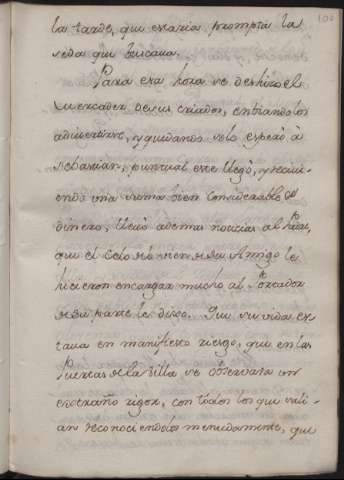 100
la tarde, que estaria prompta la
seda que buscava.
Para esa hora se deshizo el
Mercader de sus criados, embiandolos
a divertirse, y quedando solo esperó à
Sebastian, puntual este llegò, y reciui-
endo una suma bien considerable de
dinero, llevó ademas noticias al Padre,
que el Zelo de buen Amigo le
hicieron encargar mucho al Portador
de su parte le dixese. Que su vida es-
tava en manifiesto riesgo, que en las
Puertas de la Villa se observava un
estraño rigor, con todos los que sali-
an reconociendolos menudamente, que